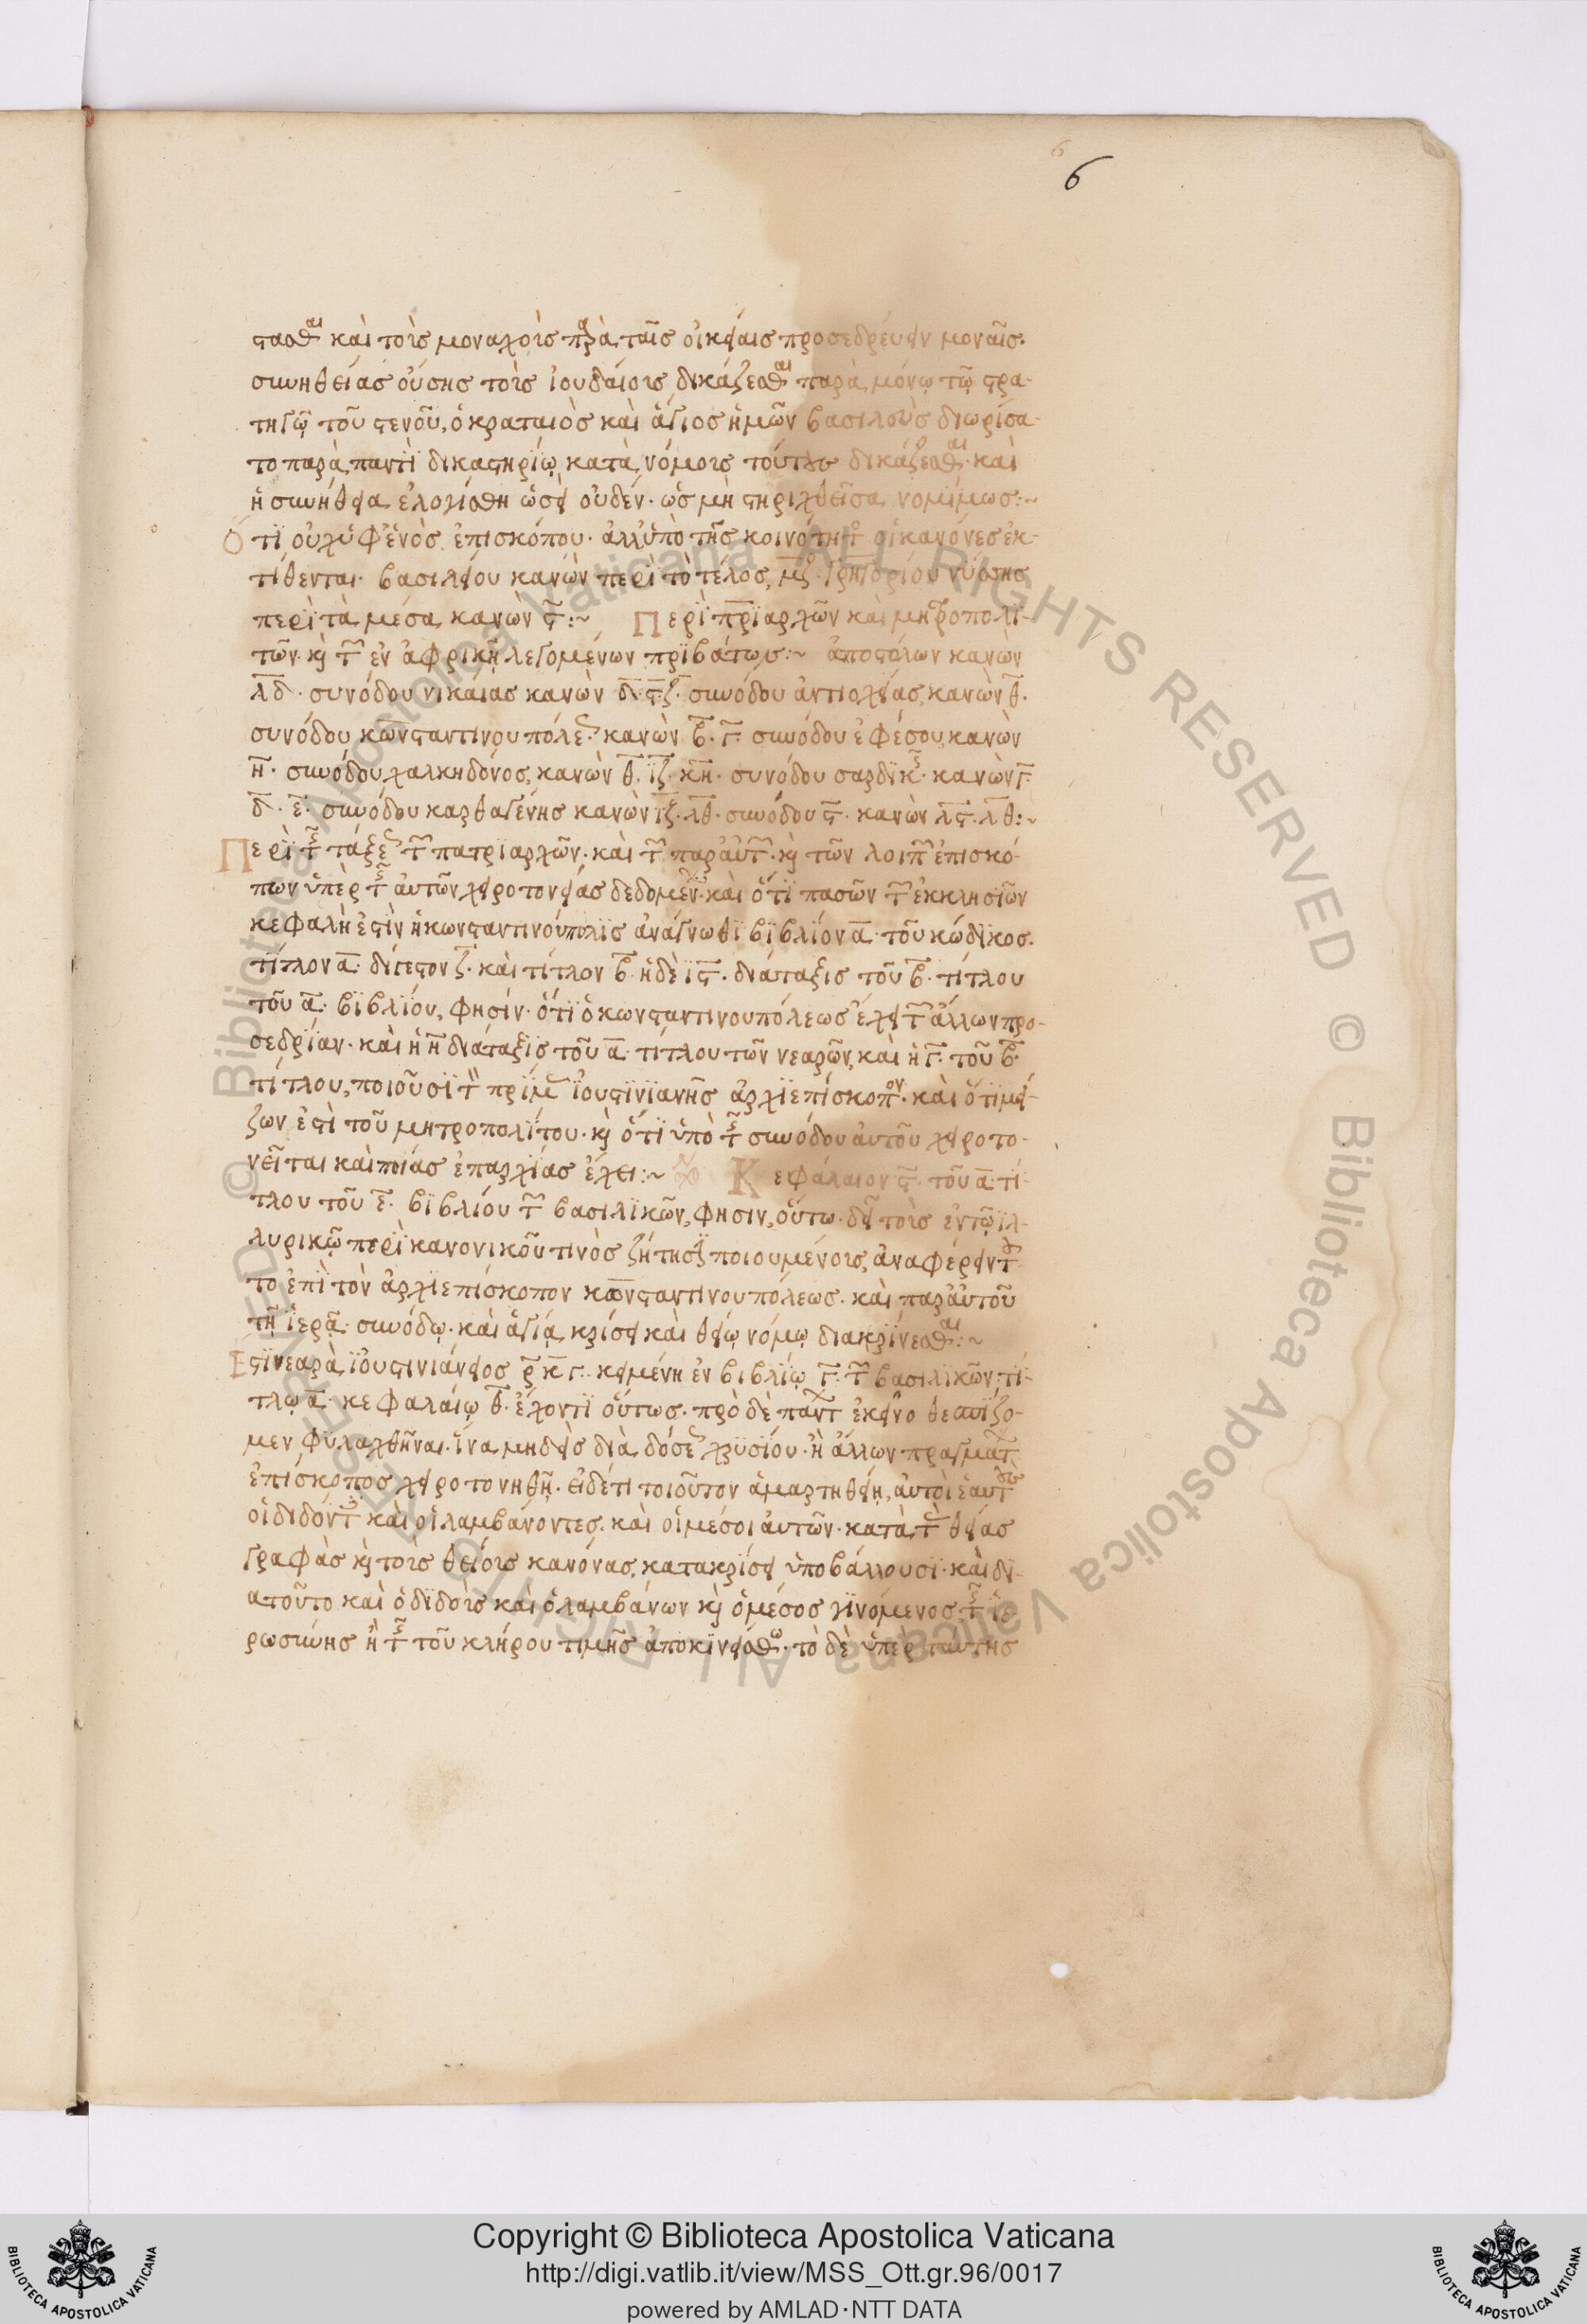 6
6
στασθαι καὶ τοῖς μοναχοῖς παρὰ ταῖς οἰκείαις προσεδρεύειν μοναῖς·
συνηθείας οὔσης τοῖς ἰουδαίοις δικάζεσθαι παρὰ μόνῳ τῷ στρα-
τηγῷ τοῦ στενοῦ, ὁ κραταιὸς καὶ ἅγιος ἡμῶν βασιλεὺς διωρίσα-
το παρὰ παντὶ δικαστηρίῳ κατὰ νόμους τούτους δικάζεσθαι· καὶ
ἡ συνήθεια ἐλογίσθη ὡσεὶ οὐδέν· ὡς μὴ στηριχθεῖσα νομίμως:~
Ὅτι οὐχ ὑφ' ἑνὸς ἐπισκόπου· ἀλλ' ὑπὸ τῆς κοινότητος οἱ κανόνες ἐκ-
τίθενται· βασιλείου κανὼν περὶ τὸ τέλος, μζ· γρηγορίου νύσσης
περὶ τὰ μέσα κανὼν ϛ:~ Περὶ πριαρχῶν καὶ μητροπολι-
τῶν· κ τῶν ἐν ἀφρικῇ λεγομένων πριβάτων:~ ἀποστόλων κανὼν
λδ· συνόδου νικαίας κανὼν δ· ϛ· ζ· συνόδου ἀντιοχείας, κανὼν θ·
συνόδου κωνσταντινουπόλεως· κανὼν β· γ· συνόδου ἐφέσου, κανὼν
η· συνόδου χαλκηδόνος, κανὼν θ· ιζ· κη· συνόδου σαρδικῆς· κανὼν γ·
δ· ε· συνόδου καρθαγένης κανὼν ιζ· λθ· συνόδου ϛ· κανὼν λϛ· λθ:~
Περὶ τῆς τάξεως τῶν πατριαρχῶν· καὶ τῶν παρ' αὐτῶν· κ τῶν λοιπῶν ἐπισκό-
πων ὑπὲρ τῆς αὐτῶν χειροτονείας δεδομένων· καὶ ὅτι πασῶν τῶν ἐκκλησιῶν
κεφαλὴ ἐστὶν ἡ κωνσταντινούπολις ἀνάγνωθι βιβλίον α· τοῦ κώδικος·
τίτλον α· δίγεστον ζ· καὶ τίτλον β· ἡ δὲ ιϛ· διάταξις τοῦ β· τίτλου
τοῦ α· βιβλίου, φησίν· ὅτι ὁ κωνσταντινουπόλεως ἔχει τῶν ἄλλων προ-
σεδρίαν· καὶ ἡ η διάταξις τοῦ α· τίτλου τῶν νεαρῶν, καὶ ἡ γ· τοῦ β·
τίτλου, ποιοῦσι τὸν πρίμας ἰουστινιανῆς ἀρχιεπίσκοπον· καὶ ὅτι μεί-
ζων ἐστὶ τοῦ μητροπολίτου· κ ὅτι ὑπὸ τῆς συνόδου αὐτοῦ χειροτο-
νεῖται καὶ ποίας ἐπαρχίας ἔχει:~ Κεφάλαιον ϛ· τοῦ α· τί-
τλου τοῦ ε· βιβλίου τῶν βασιλικῶν, φησιν, οὕτω· δεῖ τοῖς ἐν τῷ ἰλ-
λυρικῷ περὶ κανονικοῦ τινὸς ζήτησιν ποιουμένοις, ἀναφέρειν τοῦ-
το ἐπὶ τὸν ἀρχιεπίσκοπον κωνσταντινουπόλεως· καὶ παρ' αὐτοῦ
τῇ ἱερᾷ· συνόδῳ· καὶ ἁγίᾳ κρίσει καὶ θείῳ νόμῳ διακρίνεσθαι:~
Ἔστι νεαρὰ ἰουστινιάνειος ρκγ· κειμένη ἐν βιβλίῳ γ· τῶν βασιλικῶν· τί-
τλῳ α· κεφαλαίῳ θ· ἔχοντι οὕτως· πρὸ δὲ πάντων ἐκεῖνο θεσπίζο-
μεν φυλαχθῆναι· ἵνα μηδεὶς διὰ δόσεως χρυσίου· ἢ ἄλλων πραγμάτων
ἐπίσκοπος χειροτονηθῇ· εἰ δέ τι τοιοῦτον ἁμαρτηθείη, αὐτοὶ ἑαυτοὺς
οἱ διδόντες καὶ οἱ λαμβάνοντες· καὶ οἱ μέσοι αὐτῶν· κατὰ τὰς θείας
γραφὰς κ τοὺς θείους κανόνας, κατακρίσει ὑποβάλλουσι· καὶ δι-
ατοῦτο καὶ ὁ διδοὺς καὶ ὁ λαμβάνων κ ὁ μέσος γινόμενος τῆς ἱε-
ρωσύνης ἢ τῆς τοῦ κλήρου τιμῆς ἀποκινείσθω· τὸ δὲ ὑπὲρ ταύτης
© Biblioteca Apostolica Vaticana ALL RIGHTS RESERVED © Biblioteca Apostolica Vaticana ALL RIGHTS RESERVED
Copyright © Biblioteca Apostolica Vaticana
http://digi.vatlib.it/view/MSS_Ott.gr.96/0017
powered by AMLAD·NTT DATA
BIBLIOTECA APOSTOLICA VATICANA
BIBLIOTECA APOSTOLICA VATICANA